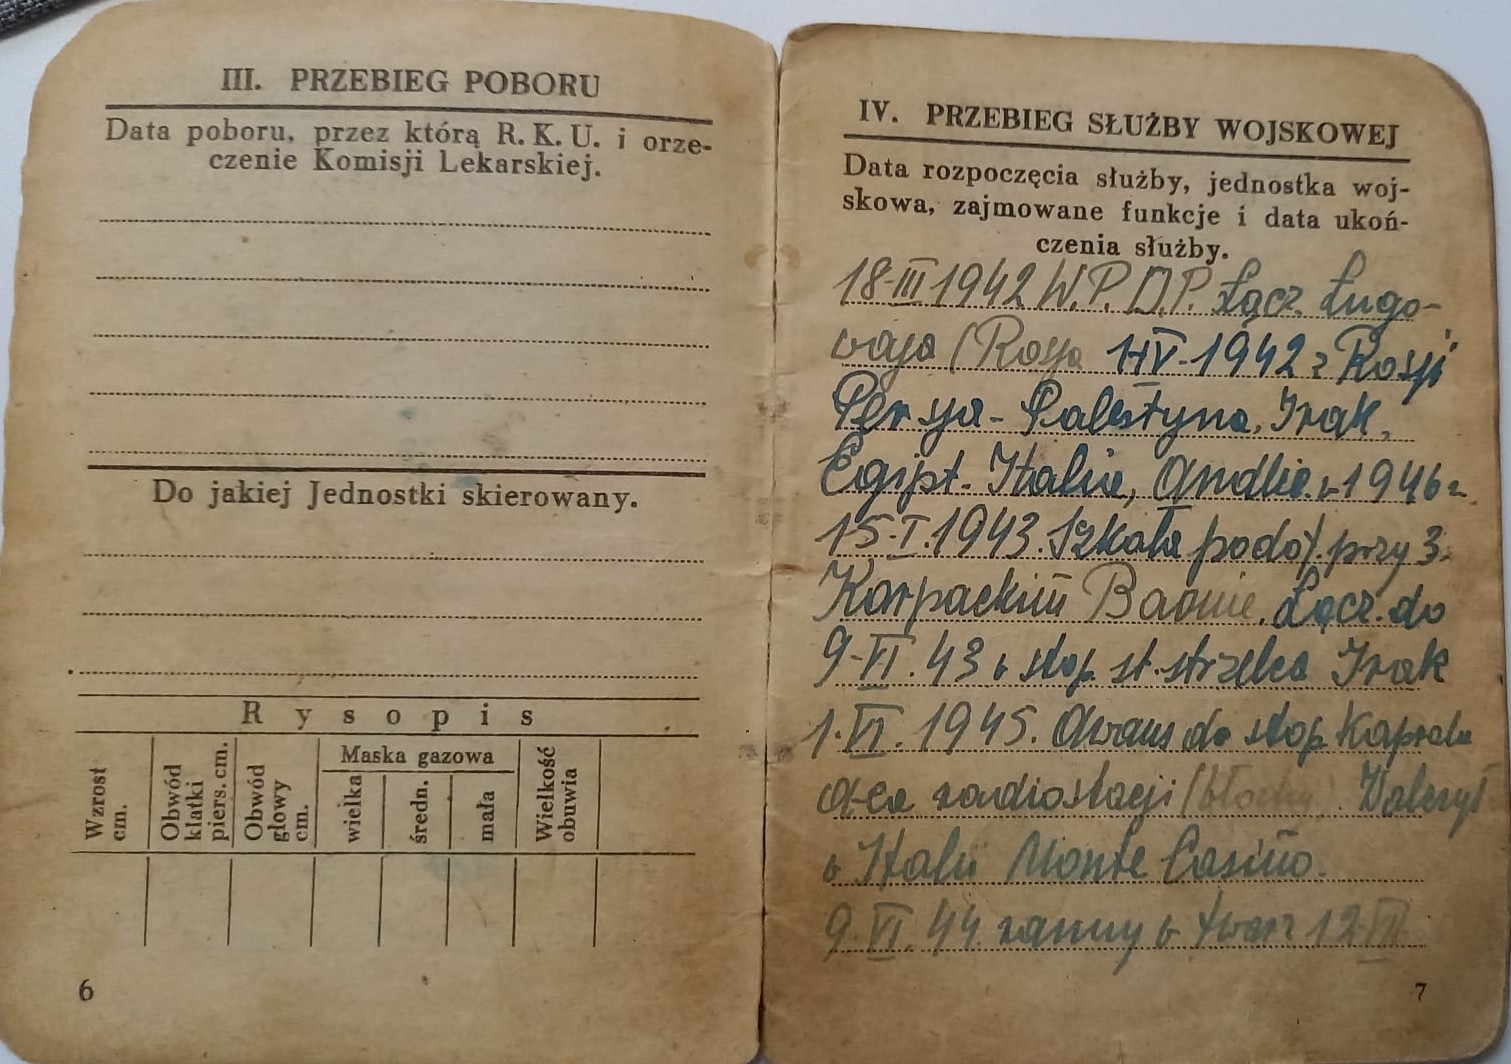 III. PRZEBIEG POBORU
Data poboru, przez którą R. K. U. i orze-
czenie Komisji Lekarskiej.
Do jakiej Jednostki skierowany.
Rysopis
Wzrost cm.
Obwód klatki piers. cm.
Obwód głowy cm.
Maska gazowa
wielka
średn.
mała
Wielkość obuwia
6
IV. PRZEBIEG SŁUŻBY WOJSKOWEJ
Data rozpoczęcia służby, jednostka woj-
skowa, zajmowane funkcje i data ukoń-
czenia służby.
18-III 1942 W.P. D.P. Łącz. Ługo-
waja (Rosja 1942 z Rosji
Persja - Palestyna, Irak,
Egipt - Italia, 1946 r.
15-I.1943. Szkoła podof. przy 3.
Karpackim Baonie. Łącz. do
9-VI.43 w stop. st. strzelca Irak
1.VI.1945. Awans do stop. Kaprala
d-ca radiostacji Walczył
w Italii Monte Casino.
9.VI.44 ranny w twarz 12
7